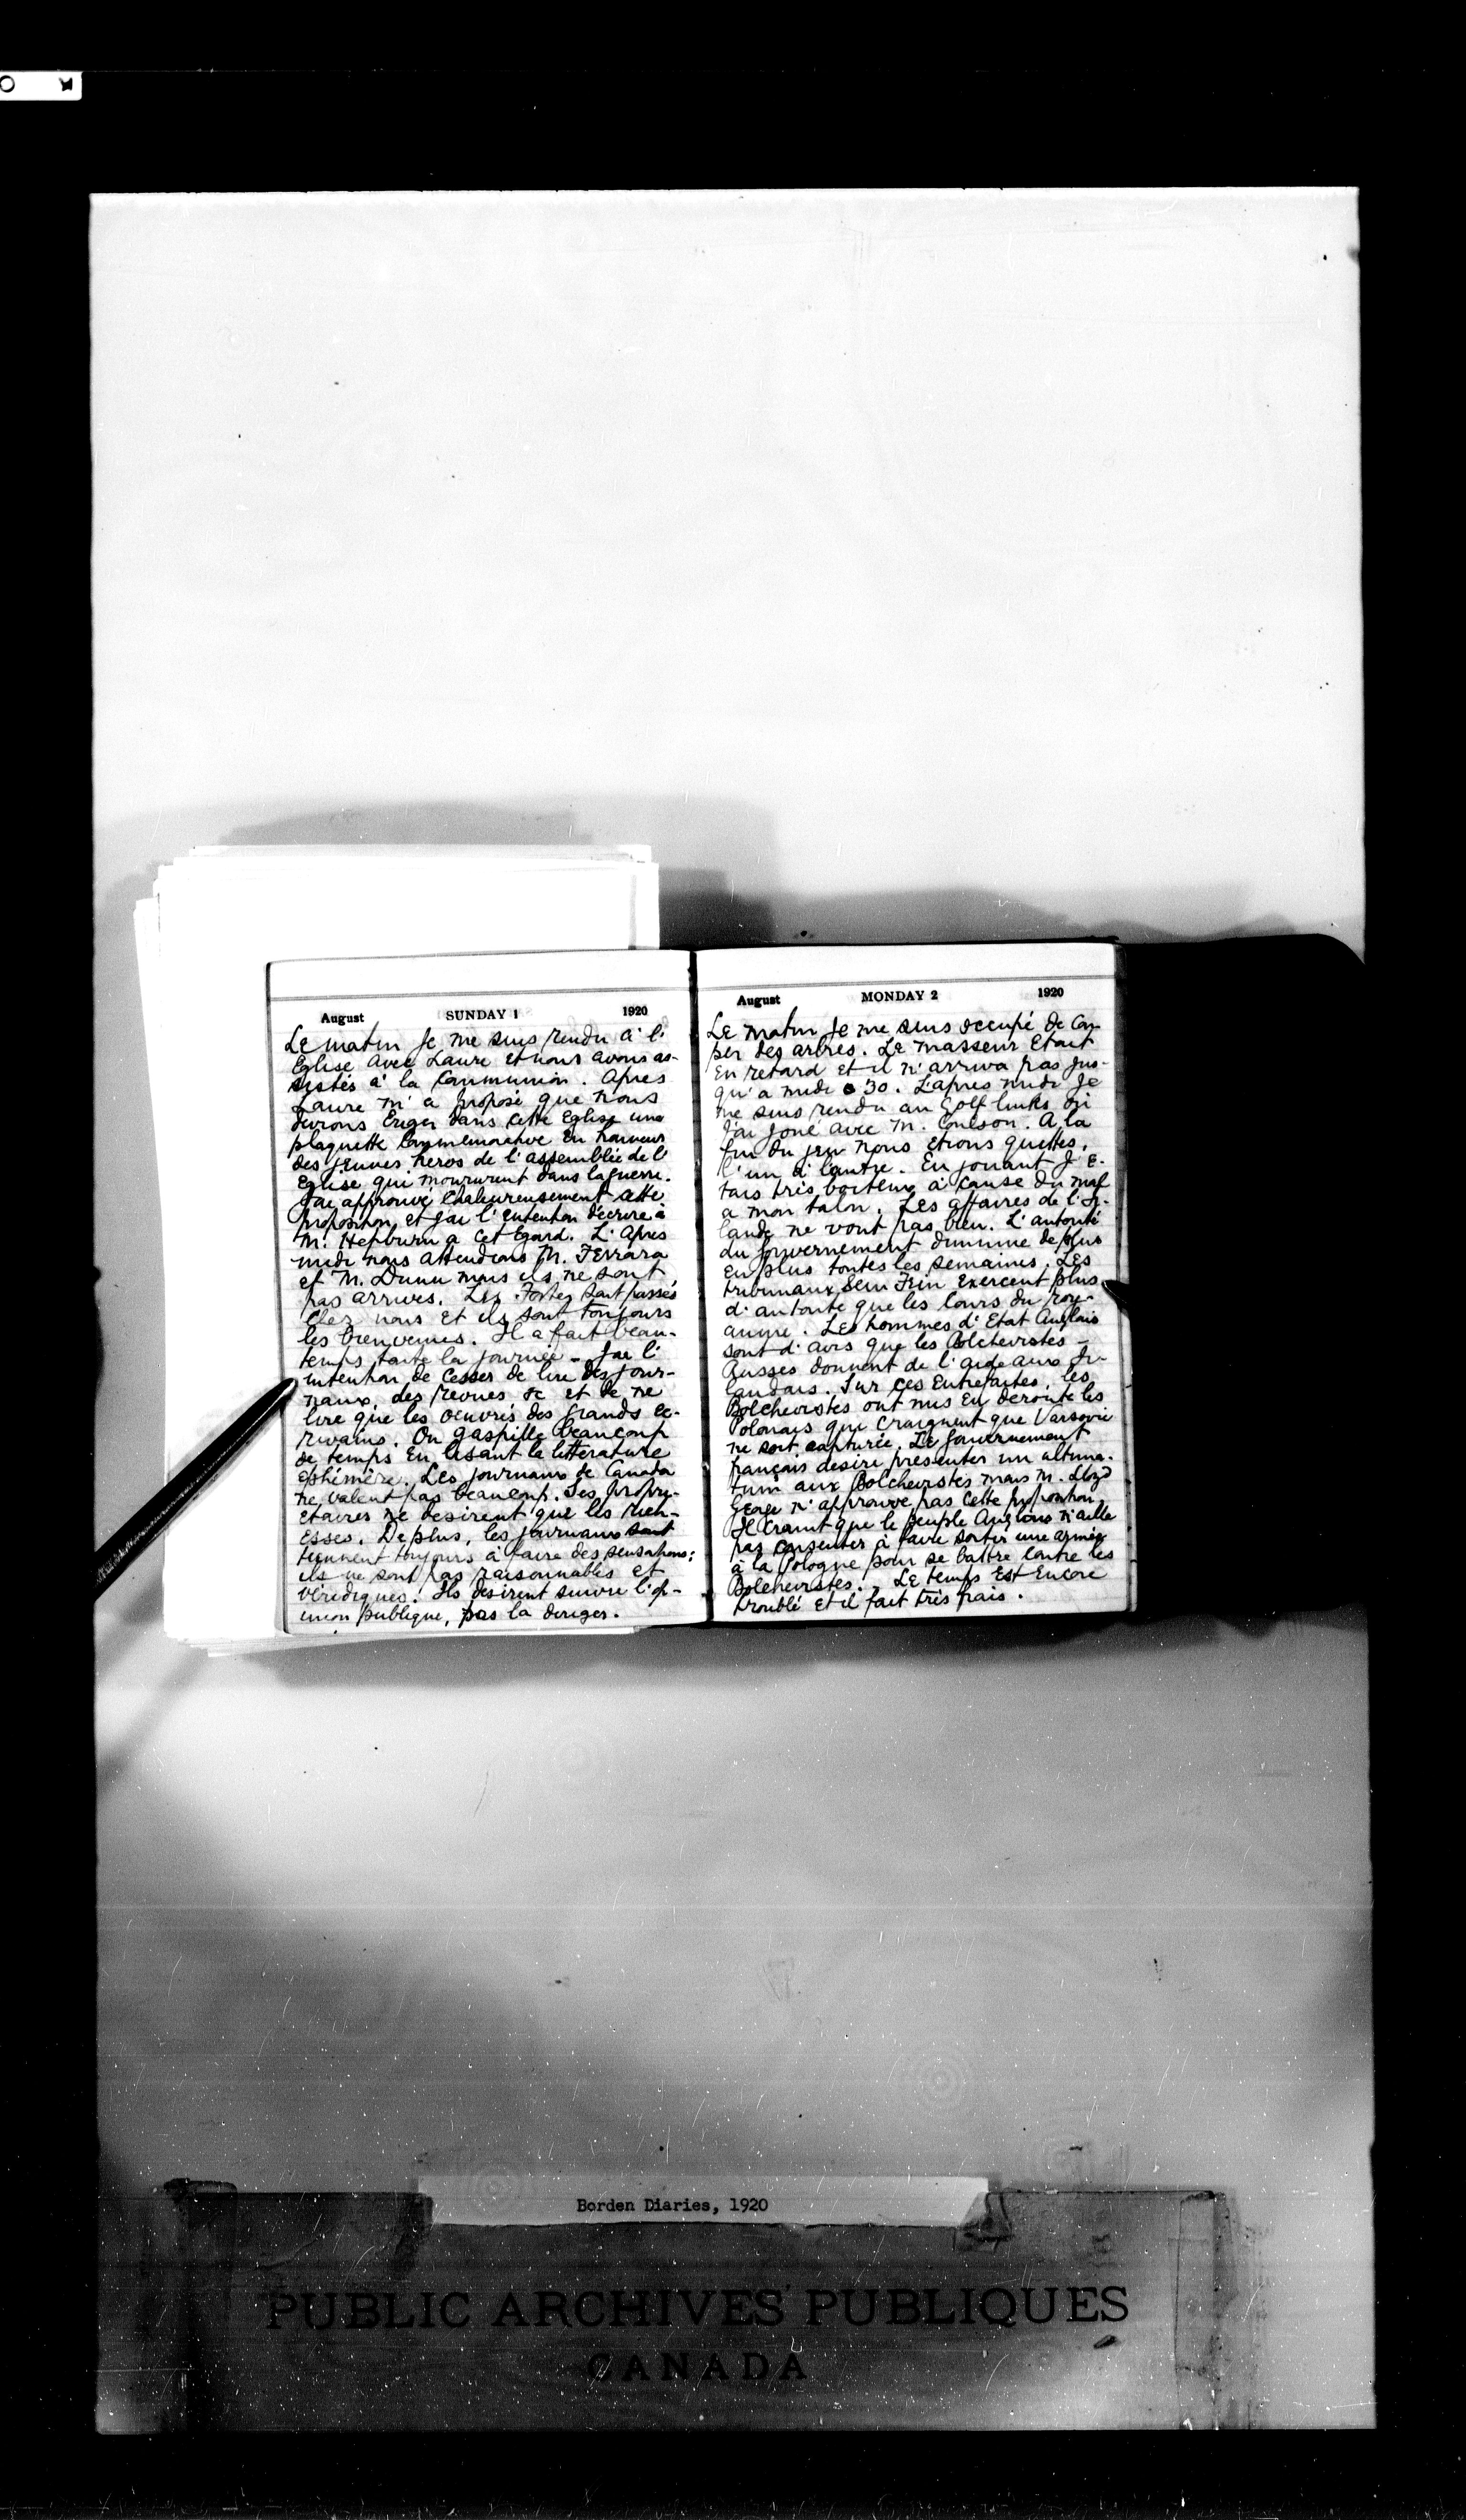 August SUNDAY 1 1920
Le matin je me suis rendu à l'
Eglise avec Laure et nous avons as-
sistés à la Communion. Apres
Laure m'a proposé que nous
devrons Eriger dans cette Eglise une
plaquette Commemorative En honneur
des jeunes heros de l'assemblée de l'
Eglise qui moururent dans la guerre.
J'ai approuvé Chaleureusement cette
proposition et j'ai l'intention d'ecrire à
M. Hepburn a cet Egard. L'Apres
midi nous attendions M. Ferrara
et M. Dunn mais ils ne sont
pas arrives. Les Foster sont passés
chez nous Et ils sont toujours
les bienvenus. Il a fait beau-
temps toute la journée - J'ai l'
intention de Cesser de lire des jour-
naux, des revues &c et de ne
lire que les oeuvres des grands ec-
rivains. On gaspille beaucoup
de temps En lisant la litterature
ephémère. Les journaux de Canada
ne valent pas beaucoup. Ses propri-
etaires ne desirent que les rich-
esses. De plus, les journaux sont
tiennent toujours à faire des sensations;
ils ne sont pas raisonnables et
véridiques. Ils desirent suivre l'op-
inion publique, pas la diriger.
August MONDAY 2 1920
Le matin je me suis occupé de Cou-
per des arbres. Le masseur Etait
En retard Et il n'arriva pas jus-
qu'a midi 30. L'apres midi je
me suis rendu au Golf links où
j'ai joué avec M. Coulson. A la
fin du jeu nous etions quittes,
l'un à l'autre. En jouant j'e-
tais très boiteux à cause du mal
a mon talon. Les affaires de l'Ir-
lande ne vont pas bien. L'autorité
du Gouvernement diminue de plus
en plus toutes les semaines. Les
tribunaux Sein Fein Exercent plus
d'autorité que les Cours du roy-
aume. Les hommes d'Etat Anglais
sont d'avis que les Bolchevistes -
Russes donnent de l'aide aux Ir-
landais. Sur ces Entrefaites, les
Bolchevistes ont mis En deroute les
Polonais qui Craignent que Varsovie
ne soit capturée. Le Gouvernement
français desire presenter un ultima-
tum aux Bolchevistes mais M. Lloyd
George n'approuve pas cette proposition
Il Craint que le peuple Anglais n'aille
pas consenter à faire sortir une armée
à la Pologne pour se battre Contre les
Bolchevistes. Le temps Est Encore
troublé Et il fait très frais.
Borden Diaries, 1920
PUBLIC ARCHIVES PUBLIQUES
CANADA